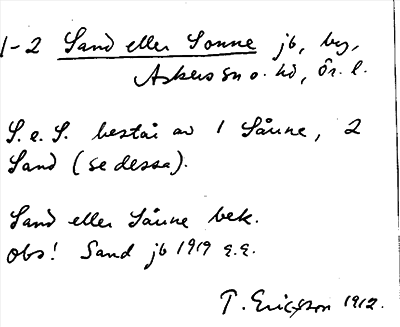 1-2 Sand eller Sonne jb, by,
Askers sn o. hd, Ör. l.
S. e. S. består av 1 Sånne, 2
Sand (se dessa).
Sand eller Sånne bek.
obs! Sand jb 1919 e.e.
T. Ericsson 1912.